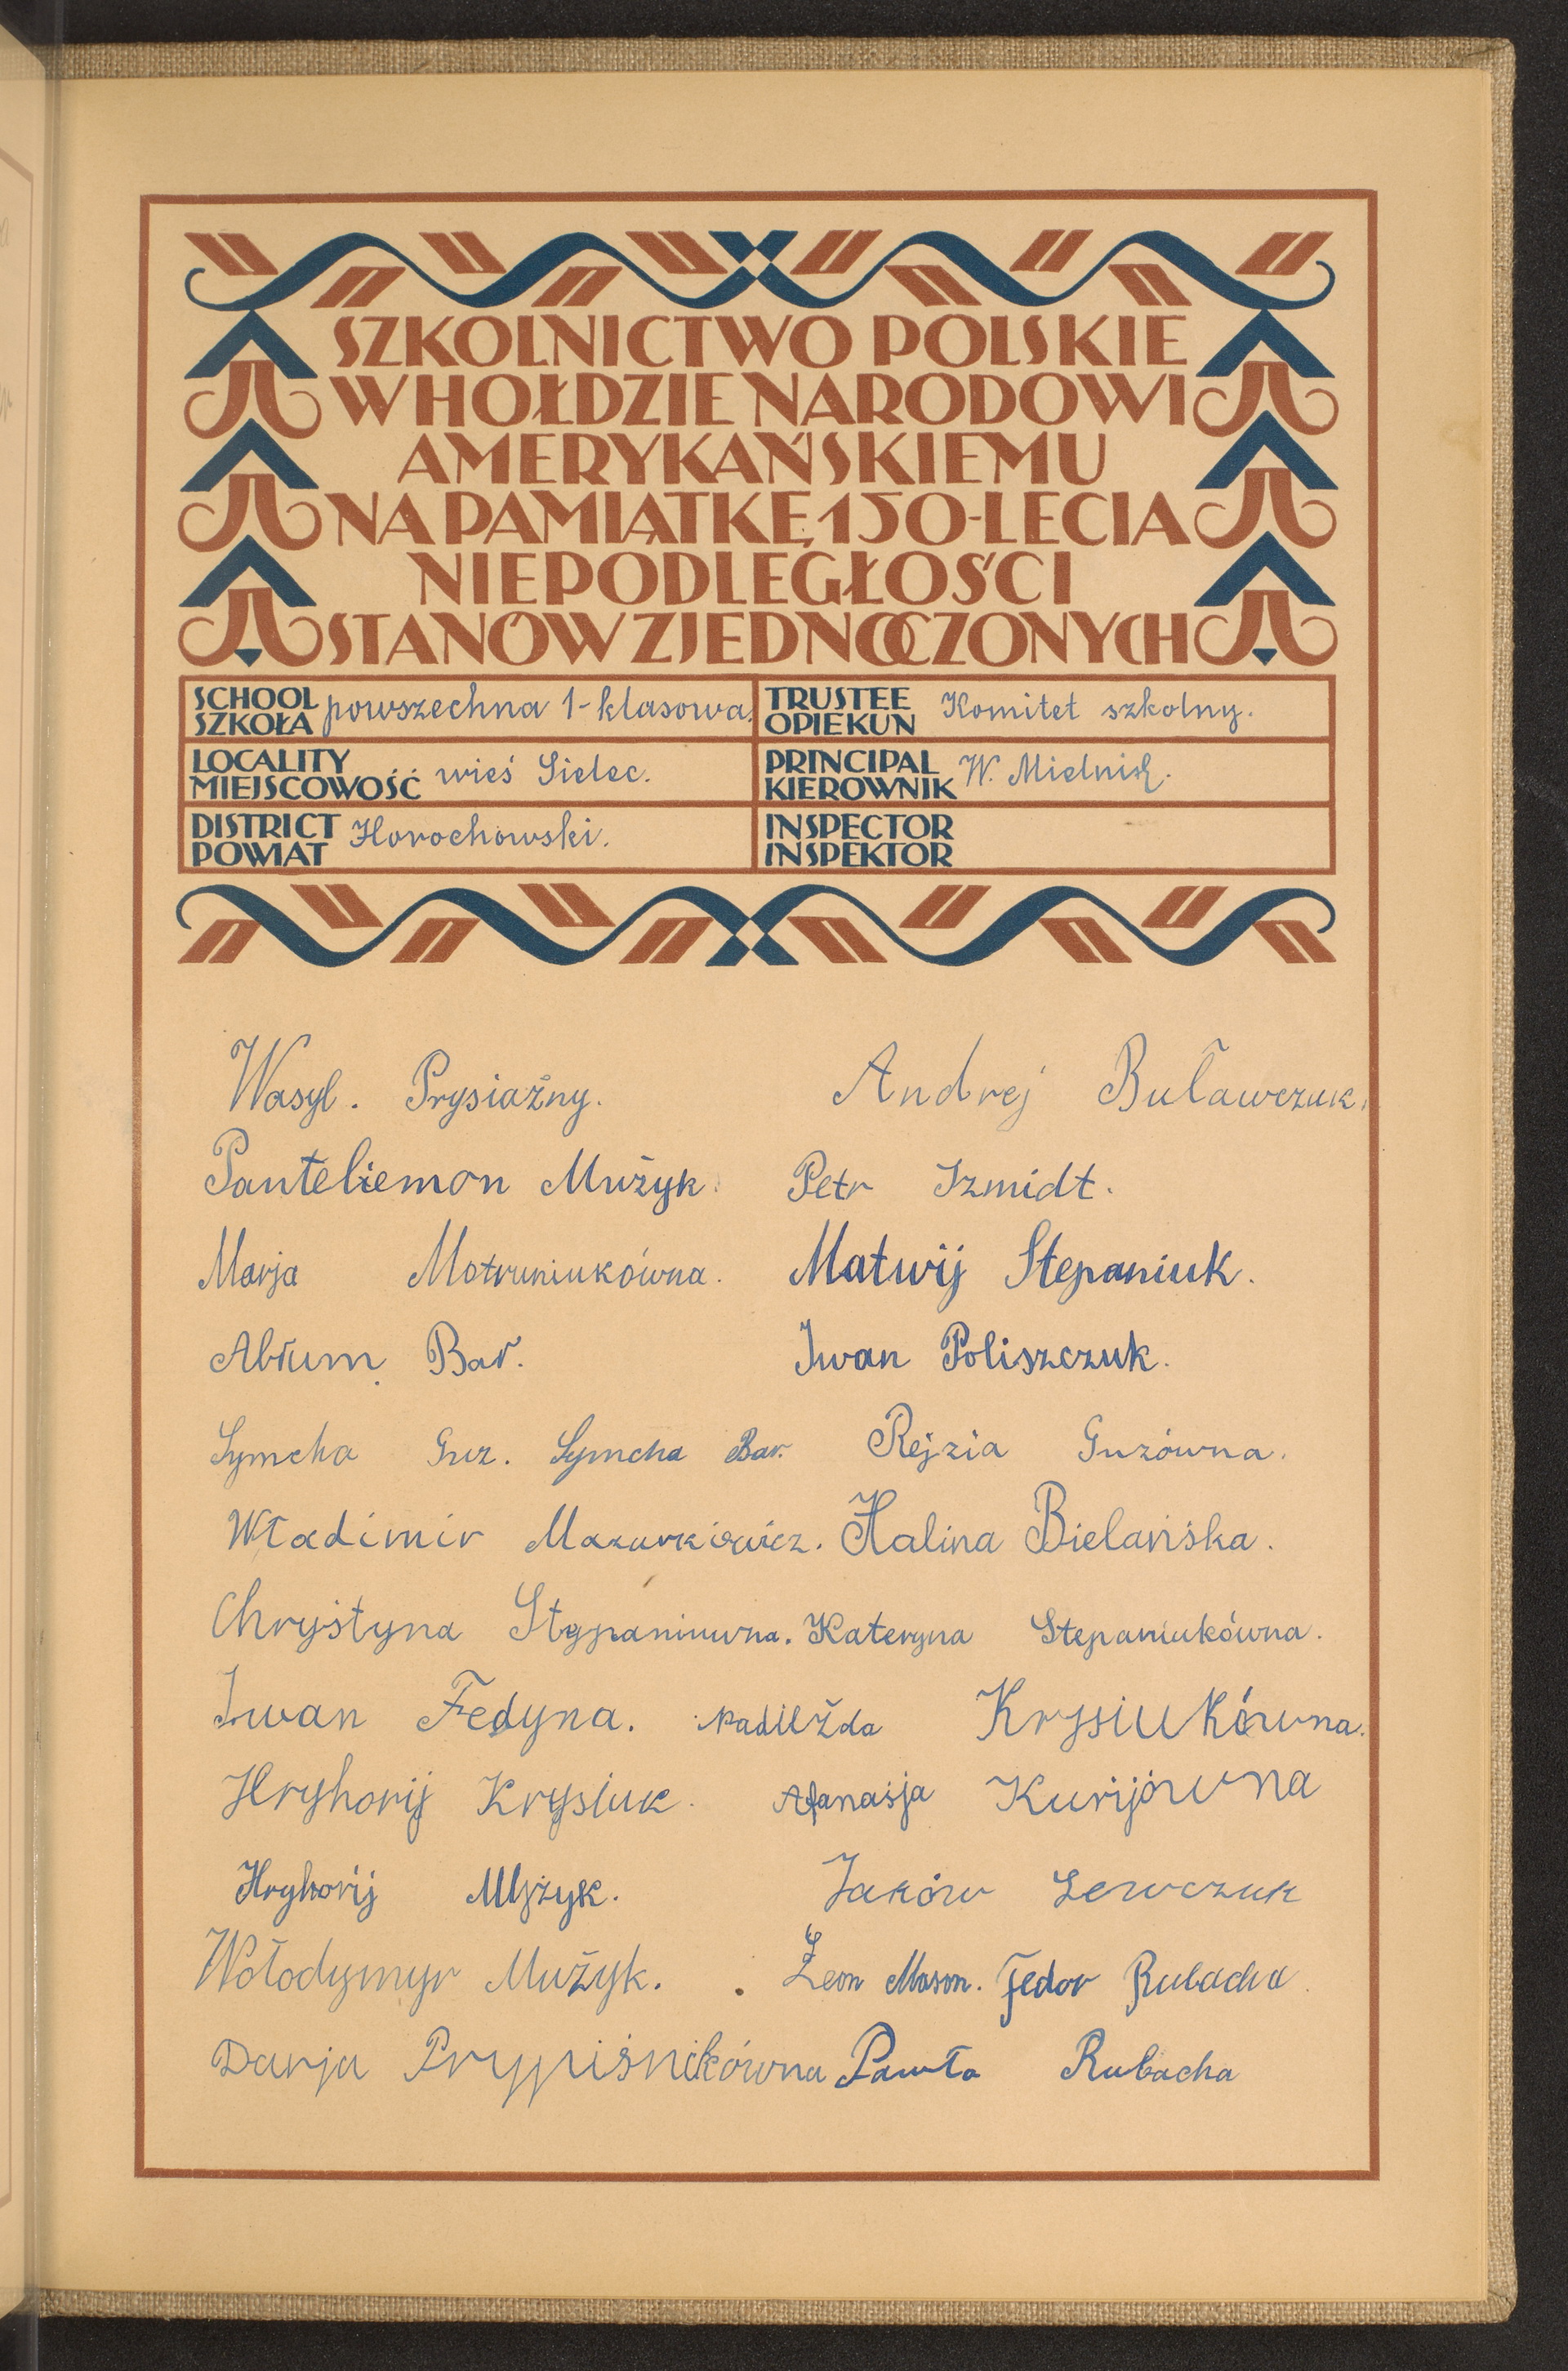 SZKOLNICTWO POLSKIE
W HOŁDZIE NARODOWI
AMERYKAŃSKIEMU
NA PAMIĄTKĘ 150-LECIA
NIEPODLEGŁOŚCI
STANÓW ZJEDNOCZONYCH
SCHOOL
SZKOŁA powszechna 1-klasowa.
TRUSTEE
OPIEKUN Komitet szkolny.
LOCALITY
MIEJSCOWOŚĆ wieś Sielec.
PRINCIPAL
KIEROWNIK W. Mielnik.
DISTRICT
POWIAT Horochowski.
INSPECTOR
INSPEKTOR
Wasyl. Prysiażny. Andrej Buławczuk.
Panteliemon Mużyk. Petr Szmidt.
Marja Motruniukówna. Matwij Stepaniuk.
Abrum Bar. Iwan Poliszczuk.
Symcha Guz. Symcha Bar. Rejzia Guzówna.
Władimir Mazurkiewicz. Halina Bielańska.
Chrystyna Kateryna Stepaniukówna.
Iwan Fedyna. Nadileżda Krysiukówna.
Hryhorij Krysiuk. Afanasja Kurijówna
Hryhorij Mużyk. Jaków Lewczuk
Wołodymyr Mużyk. Leon Mason. Fedor Rubacha.
Darja Prypiśnikówna Pawło Rubacha